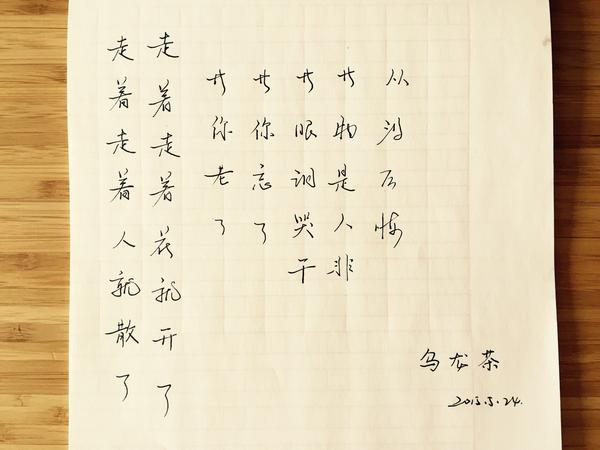 走着走着人就散了
走着走着花就开了
等你老了
等你忘了
等眼泪哭干
等物是人非
从没后悔
乌龙茶
2015.5.24.